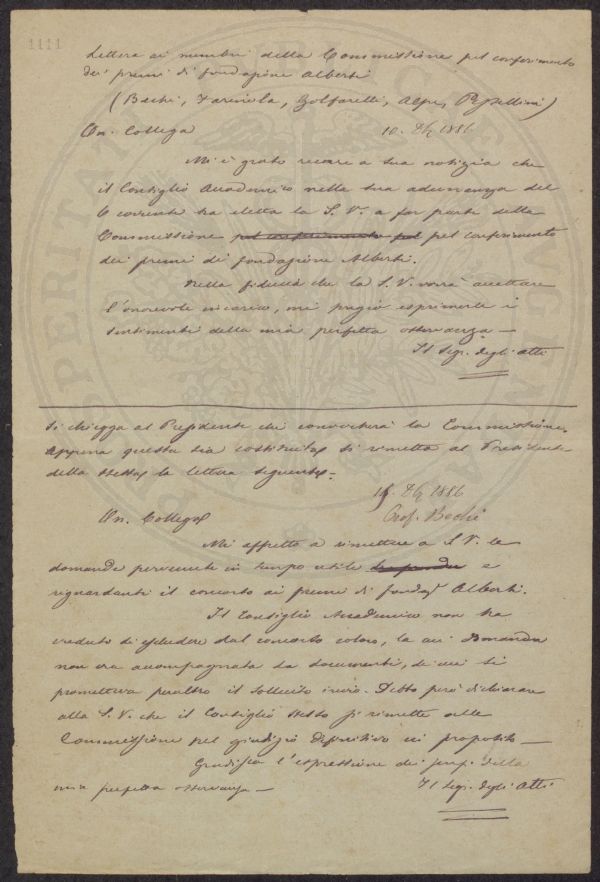 1111
Lettera ai membri della Commissione pel conferimento
dei premi di fondazione Alberti
(Bechi, Farinola, Golfarelli, Alpe, Pestellini)
On. Collega 10. Xbre 1886
Mi è grato recare a sua notizia che
il Consiglio Accademico nella sua adunanza del
6 corrente ha eletta la S. V. a far parte della
Commissione pel conferimento pel pel conferimento
dei premi di fondazione Alberti.
Nella fiducia che la S. V. vorrà accettare
l'onorevole incarico, mi pregio esprimerle i
sentimenti della mia perfetta osservanza —
Il Seg. degli Atti
Si chiegga al Presidente chi convocherà la Commissione.
Appena questa sia costituita si rimetta al Presidente
della stessa la lettera seguente.
Xbre 1886
Prof. Bechi
On. Collega
Mi affretto a rimettere a S. V. le
domande pervenute in tempo utile e
riguardanti il concorso ai premi di fondaz. Alberti.
Il Consiglio Accademico non ha
creduto di escludere dal concorso coloro, la cui domanda
non era accompagnata da documenti, di cui si
prometteva peraltro il sollecito invio. Debbo però dichiarare
alla S. V. che il Consiglio stesso si rimette alla
Commissione pel giudizio definitivo in proposito —
Gradisca l'espressione dei della
mia perfetta osservanza — Il Seg. degli Atti